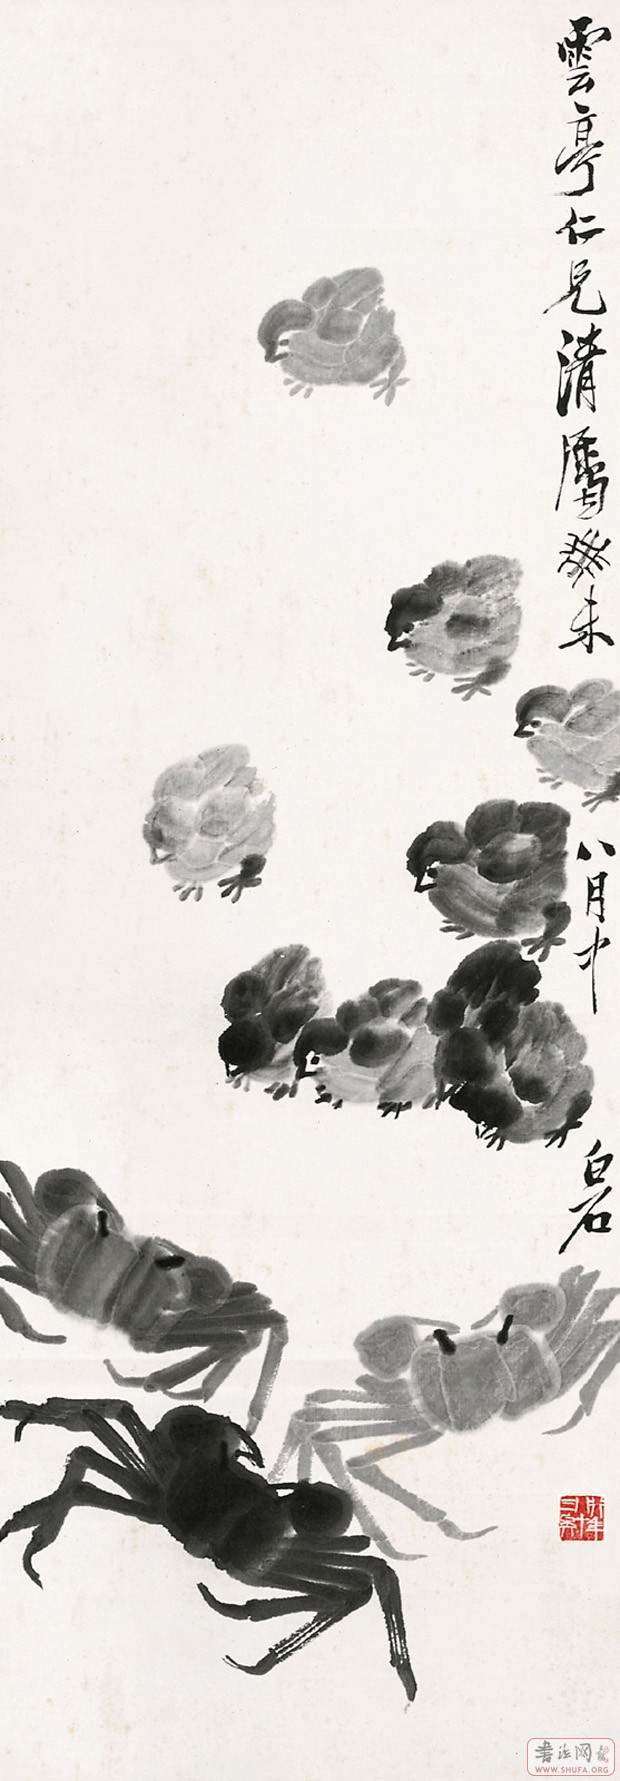 雲亭仁兄清屬癸未
八月中
白石
書法網
WWW.SHUFA.ORG